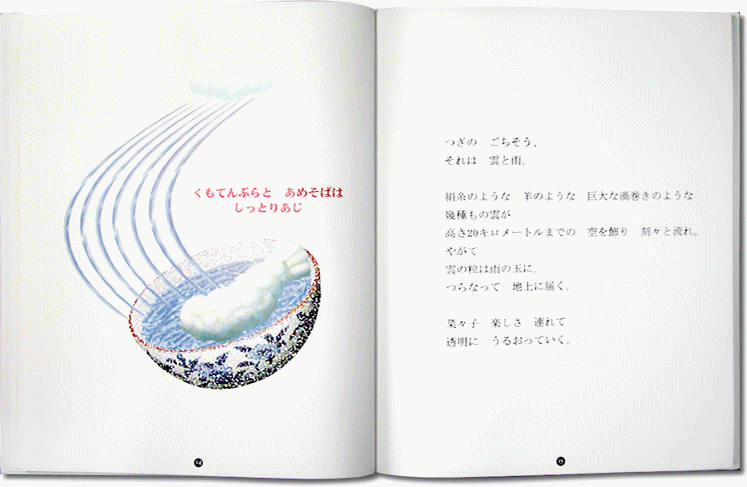 くもてんぷらと　あめそばは
しっとりあじ
14
つぎの　ごちそう、
それは　雲と雨。
絹糸のような　羊のような　巨大な渦巻きのような
幾種もの雲が
高さ20キロメートルまでの　空を飾り　刻々と流れ。
やがて
雲の粒は雨の玉に。
つらなって　地上に届く。
菜々子　楽しさ　連れて
透明に　うるおっていく。
15